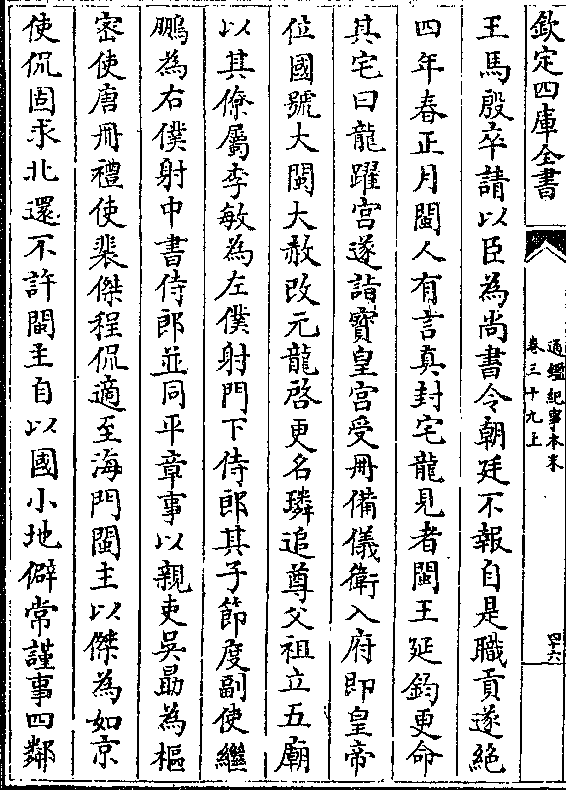 欽定四庫全書
通鑑紀事本末
卷三十九上
四十六
王馬殷卒請以臣為尚書令朝廷不報自是職貢遂絶
四年春正月閩人有言真封宅龍見者閩王延鈞更命
其宅曰龍躍宫遂詣寳皇宫受册備儀衛入府即皇帝
位國號大閩大赦改元龍啓更名璘追尊父祖立五廟
以其僚屬李敏為左僕射門下侍郎其子節度副使繼
鵬為右僕射中書侍郎並同平章事以親吏吳朂為樞
密使唐册禮使裴傑程侃適至海門閩主以傑為如京
使侃固求北還不許閩主自以國小地僻常謹事四鄰